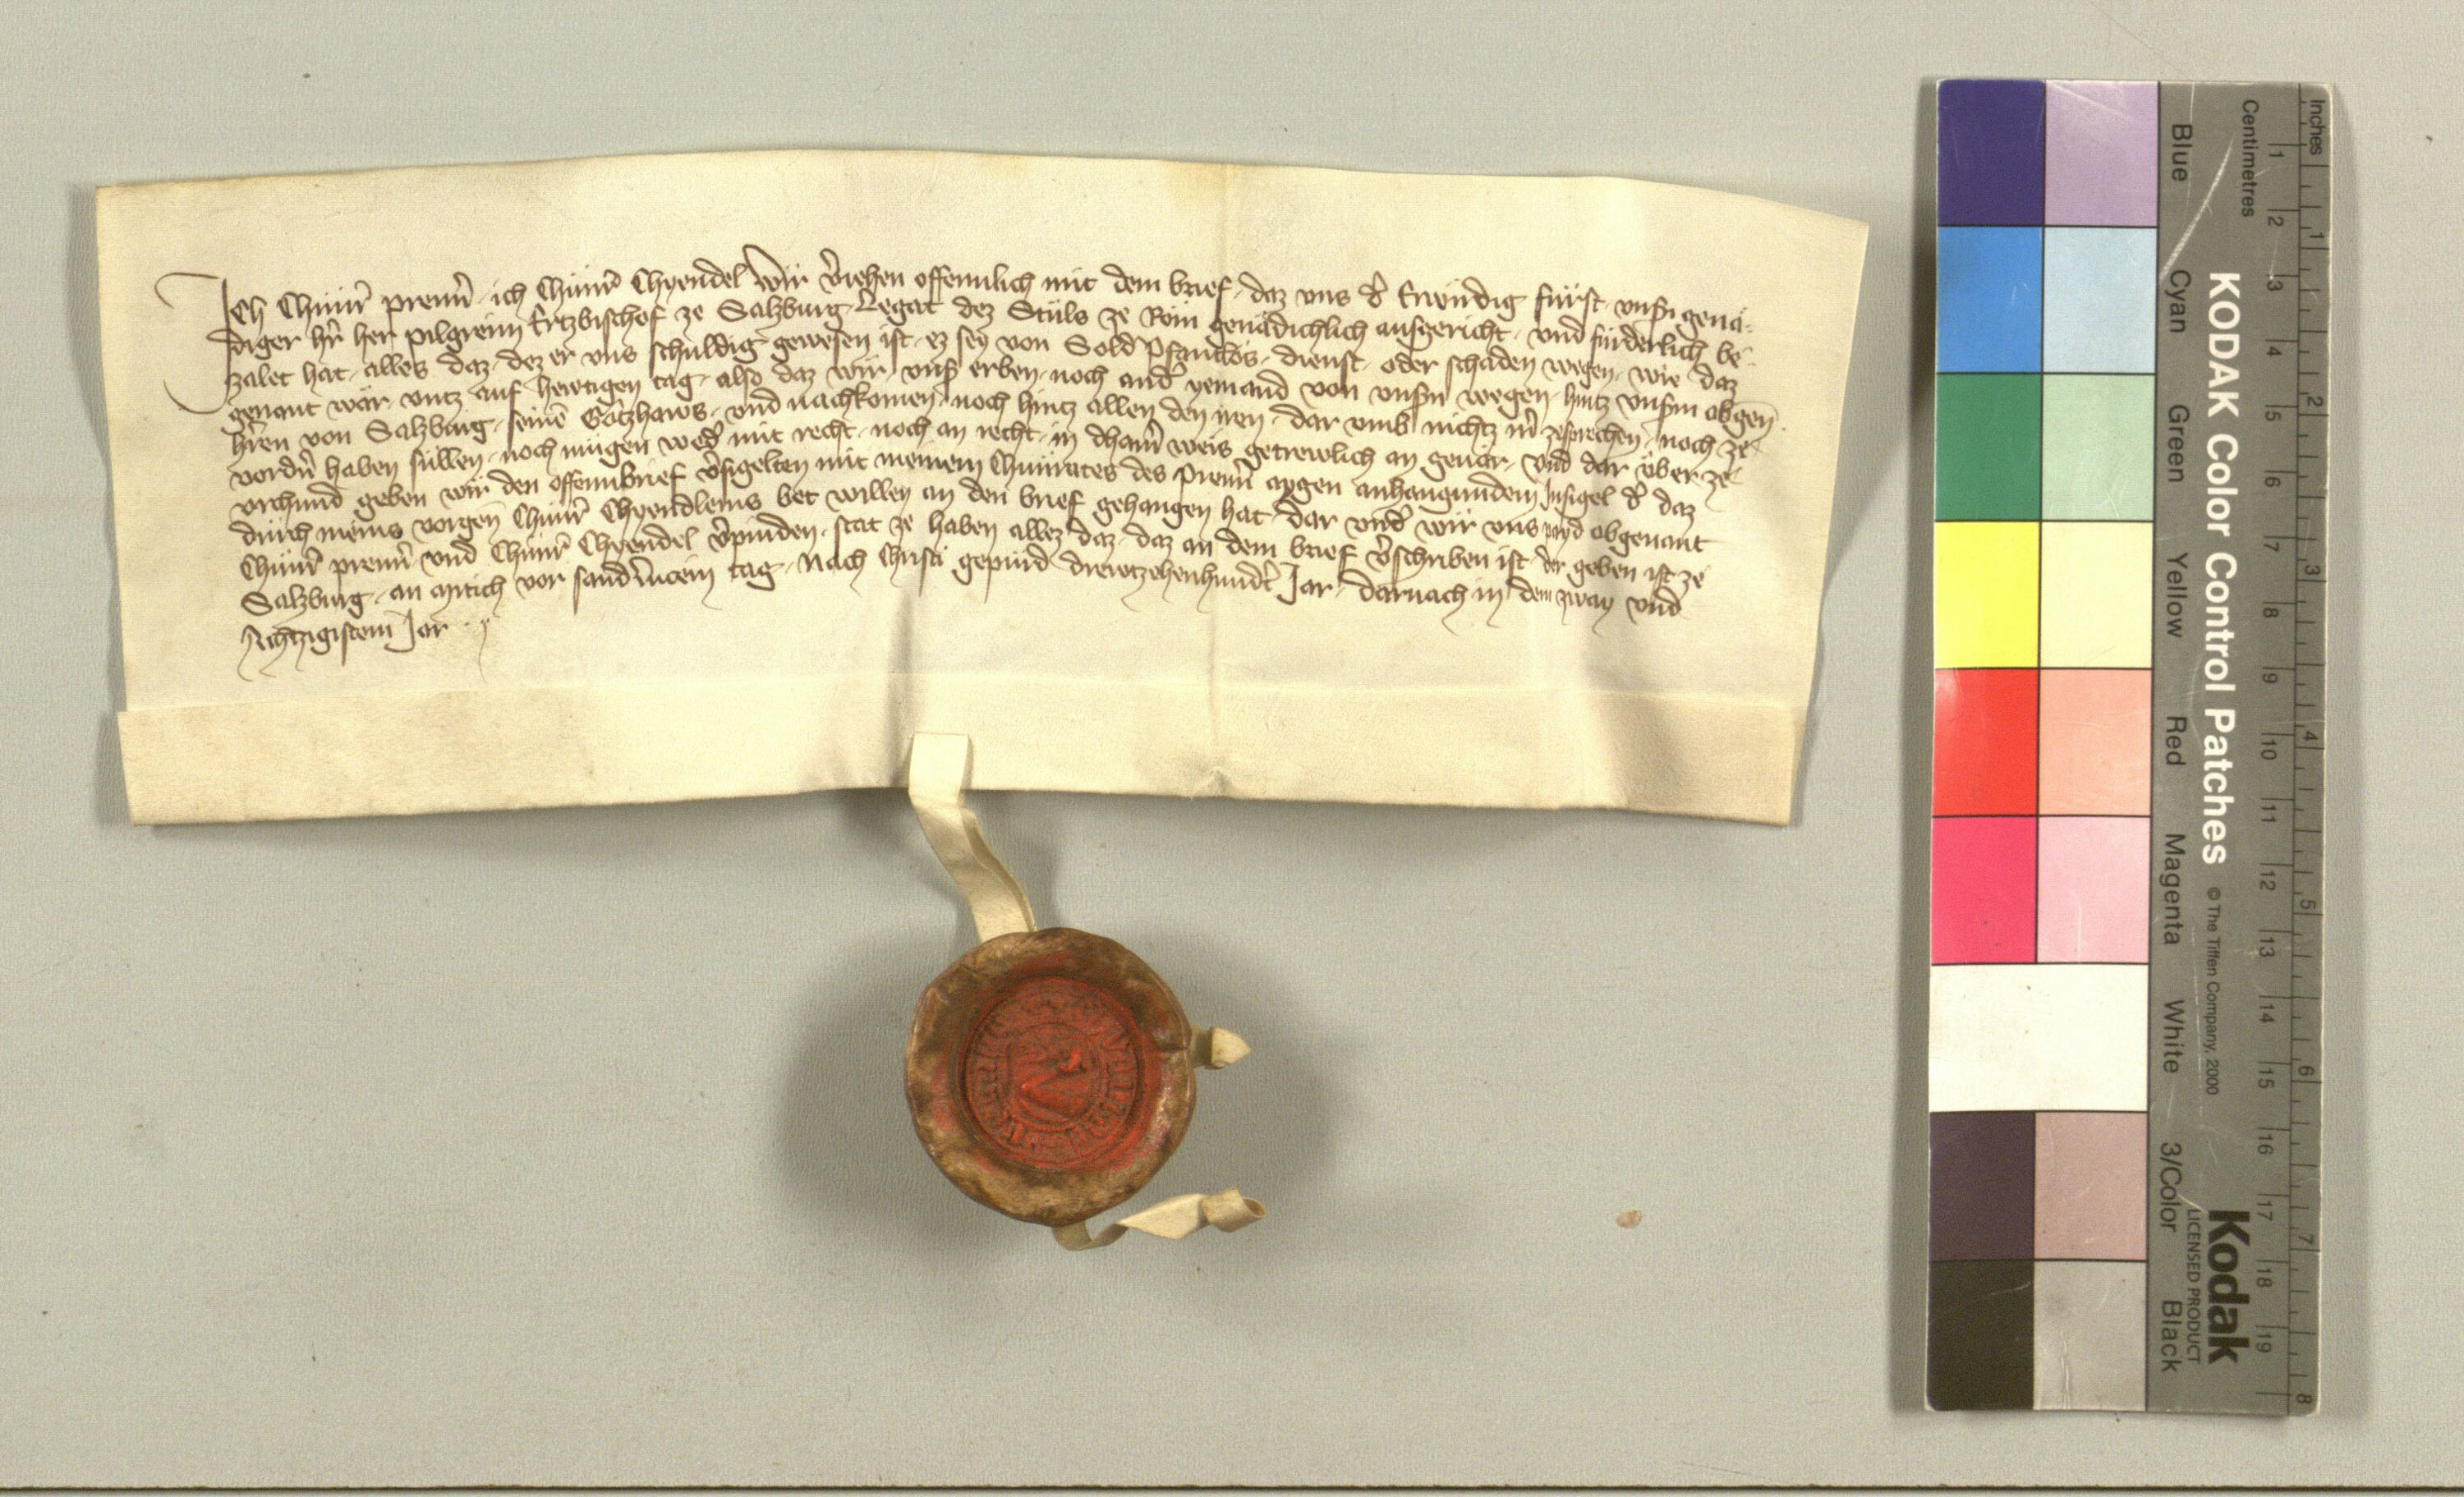 Ich Chunr̄ prenn̄ ich Chunr̄ Chyendel wir v̄iehen offennlich mit dem brief daz vns d̄ Erwirdig fürst vnsn̄ genä-
diger hr̄ her pilgreim Ertzbischof ze Salzburg Legat dez Stüls ze Rom genädichlich ausgericht vnd fürderlich be-
zalet hat alles daz dez er vns schuldig gewesen ist ez sey von Sold dienst oder schaden wegen wie daz
genant wär vntz auf hewtigen tag also daz wir vnsr̄ erben noch and̄ yemand von vnsn̄ wegen hintz vnsm̄ obgen̄
hr̄en von Salzburg seinē Gotzhaws vnd nachkomen noch hintz allen den iren dar vmb nichtz mr̄ zesprechen noch ze
vordn̄ haben süllen noch mügen wed̄ mit recht noch an recht in dhain̄ weis getrewlich an geuär vnd dar über ze
vrchund geben wir den offenn brief v̄sigelten mit meinem Chunrates des prenn̄ aygen anhangundem Insigel d̄ daz
durch meins vorgen̄ Chunr̄ Chyendleins bet willen an den brief gehangen hat dar vnd̄ wir vns payd obgenant
Chunr̄ prenn̄ vnd Chunr̄ Chyendel v̄pinden stat ze haben allez daz daz an dem brief v̄schriben ist der geben ist ze
Salzburg an mitich vor sand tag Nach Christi gepurd drewtzehenhundt̄ Jar darnach in dem zway vnd
Achtzigistem Jar
KODAK Color Control Patches
© The Tiffen Company, 2000
Kodak
LICENSED PRODUCT
Blue Cyan Green Yellow Red Magenta White 3/Color Black
Centimetres
1 2 3 4 5 6 7 8 9 10 11 12 13 14 15 16 17 18 19
Inches
1 2 3 4 5 6 7 8